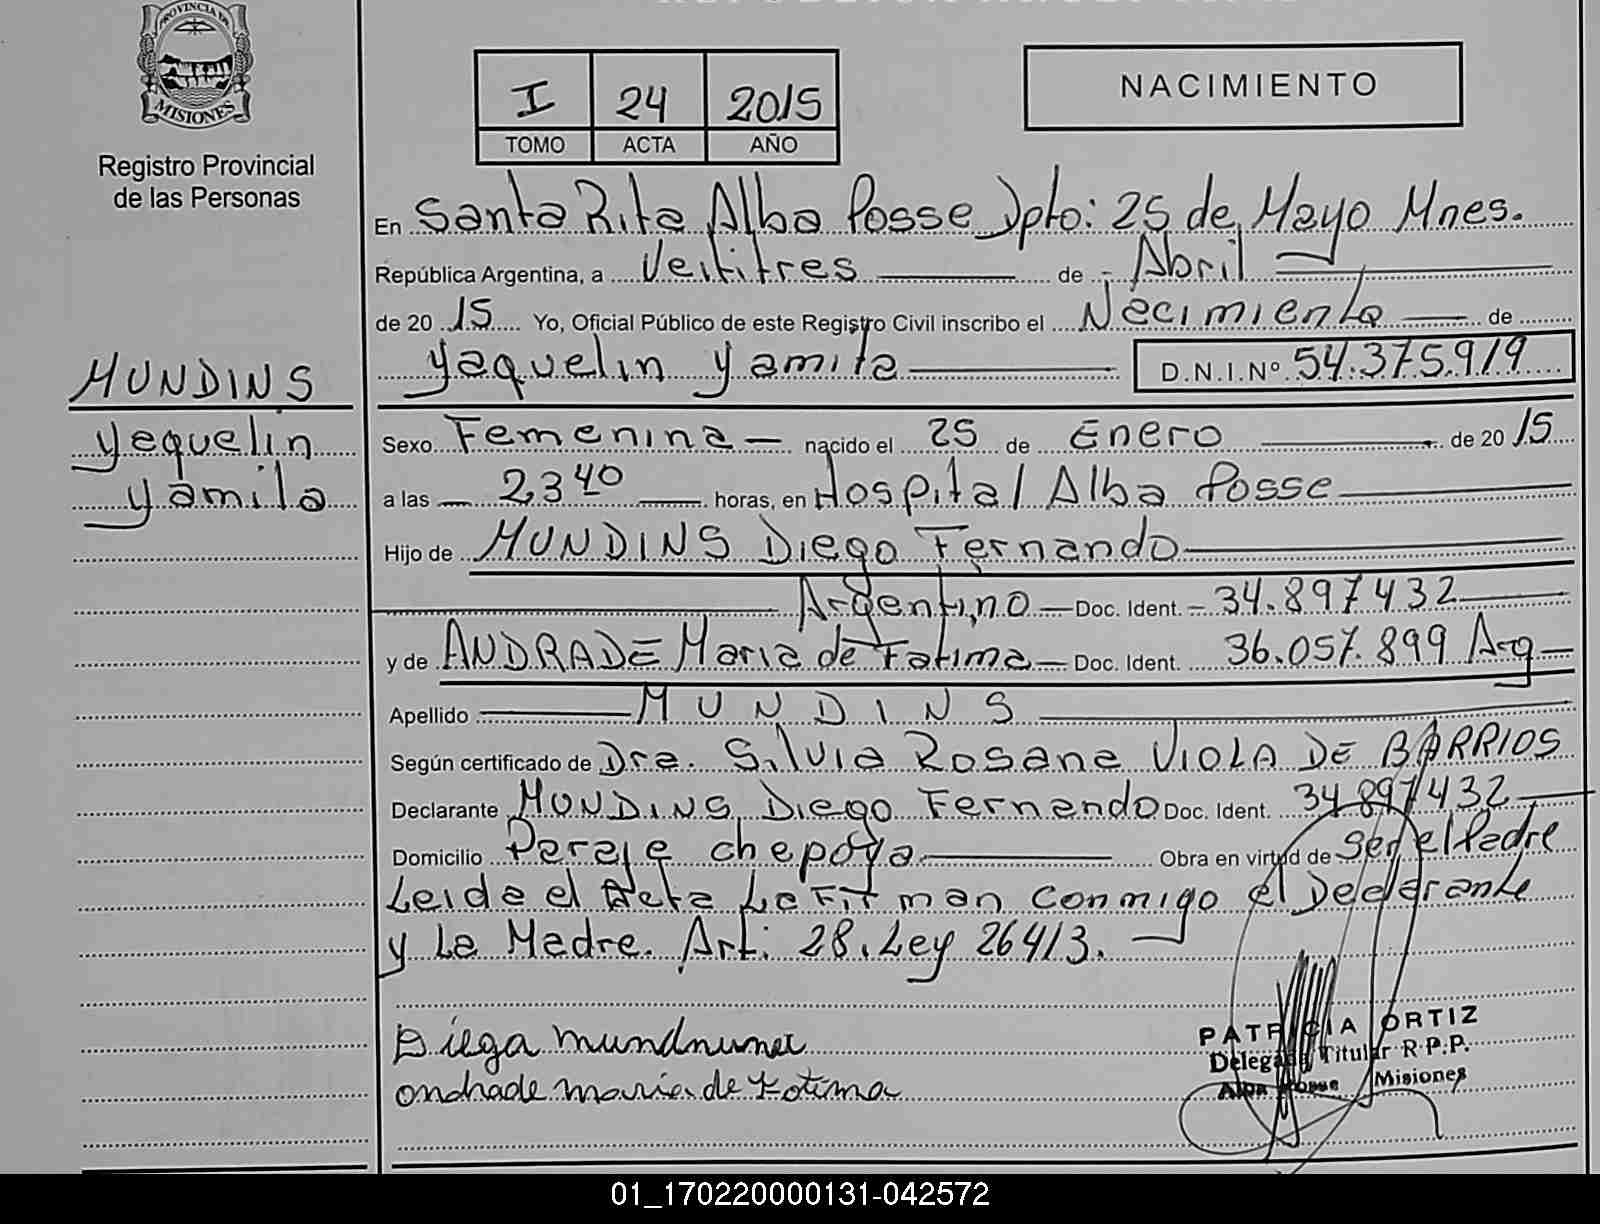 PROVINCIA DE
MISIONES
Registro Provincial
de las Personas
MUNDINS
Yaquelin
Yamila
I 24 2015
TOMO ACTA AÑO
NACIMIENTO
En Santa Rita Alba Posse Dpto: 25 de Mayo Mnes.
República Argentina, a Veititres de Abril
de 2015 Yo, Oficial Público de este Registro Civil inscribo el Nacimiento de
Yaquelin Yamila D.N.I.Nº 54.375.919
Sexo Femenina nacido el 25 de Enero de 2015
a las 23 40 horas, en Hospital Alba Posse
Hijo de MUNDINS Diego Fernando
Argentino Doc. Ident. 34.897432
y de ANDRADE Maria de Fatima Doc. Ident. 36.057.899 Arg
Apellido MUNDINS
Según certificado de Dra. Silvia Rosana VIOLA DE BARRIOS
Declarante MUNDINS Diego Fernando Doc. Ident. 34.897432
Domicilio Paraje chepoya Obra en virtud de ser el Padre
Leida el Acta La Fir man conmigo el Declarante
y La Madre. Art: 28. Ley 26413.
Diego
andrade maria de Fatima
PATRICIA ORTIZ
Delegada Titular R.P.P.
Alba Posse Misiones
01_170220000131-042572